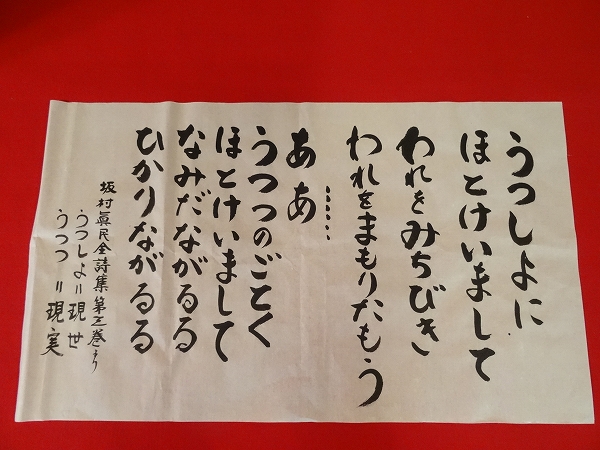 うつしよに
ほとけいまして
われをみちびき
われをまもりたもう
ああ……
うつつのごとく
ほとけいまして
なみだながるる
ひかりながるる
坂村眞民全詩集第五巻より
うつしよ＝現世
うつつ＝現実